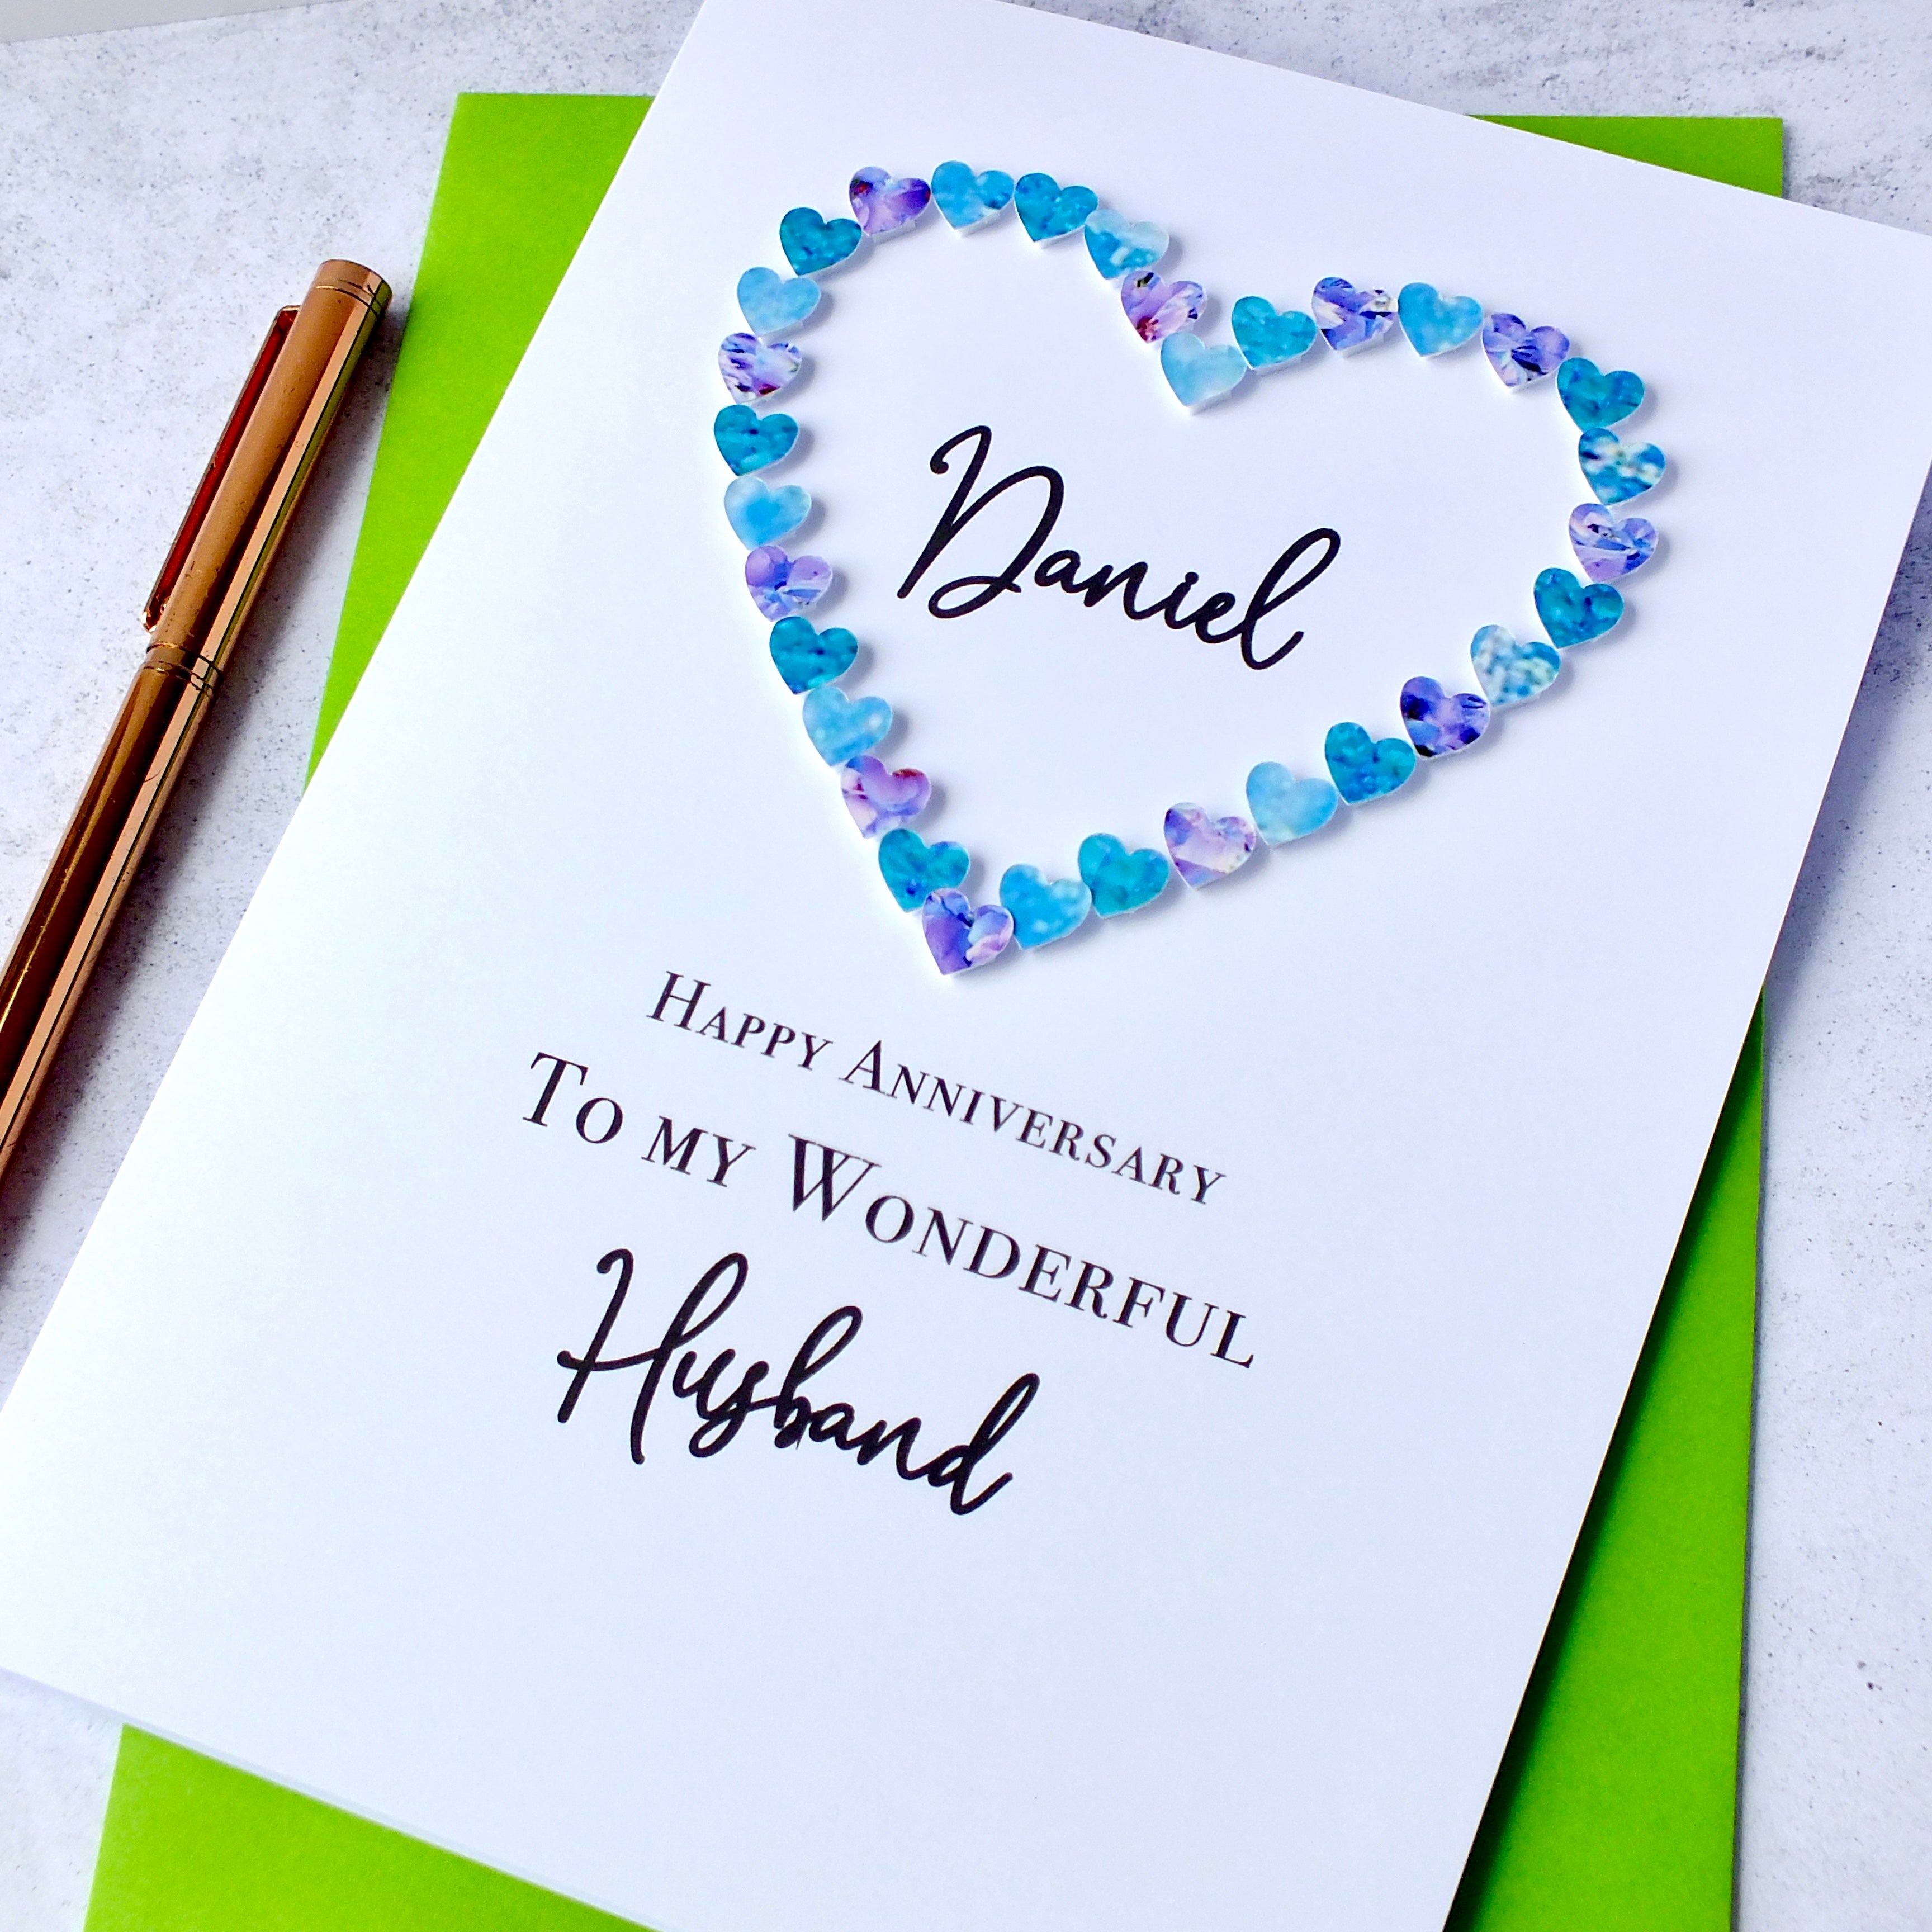 Daniel
Happy Anniversary
To my Wonderful
Husband